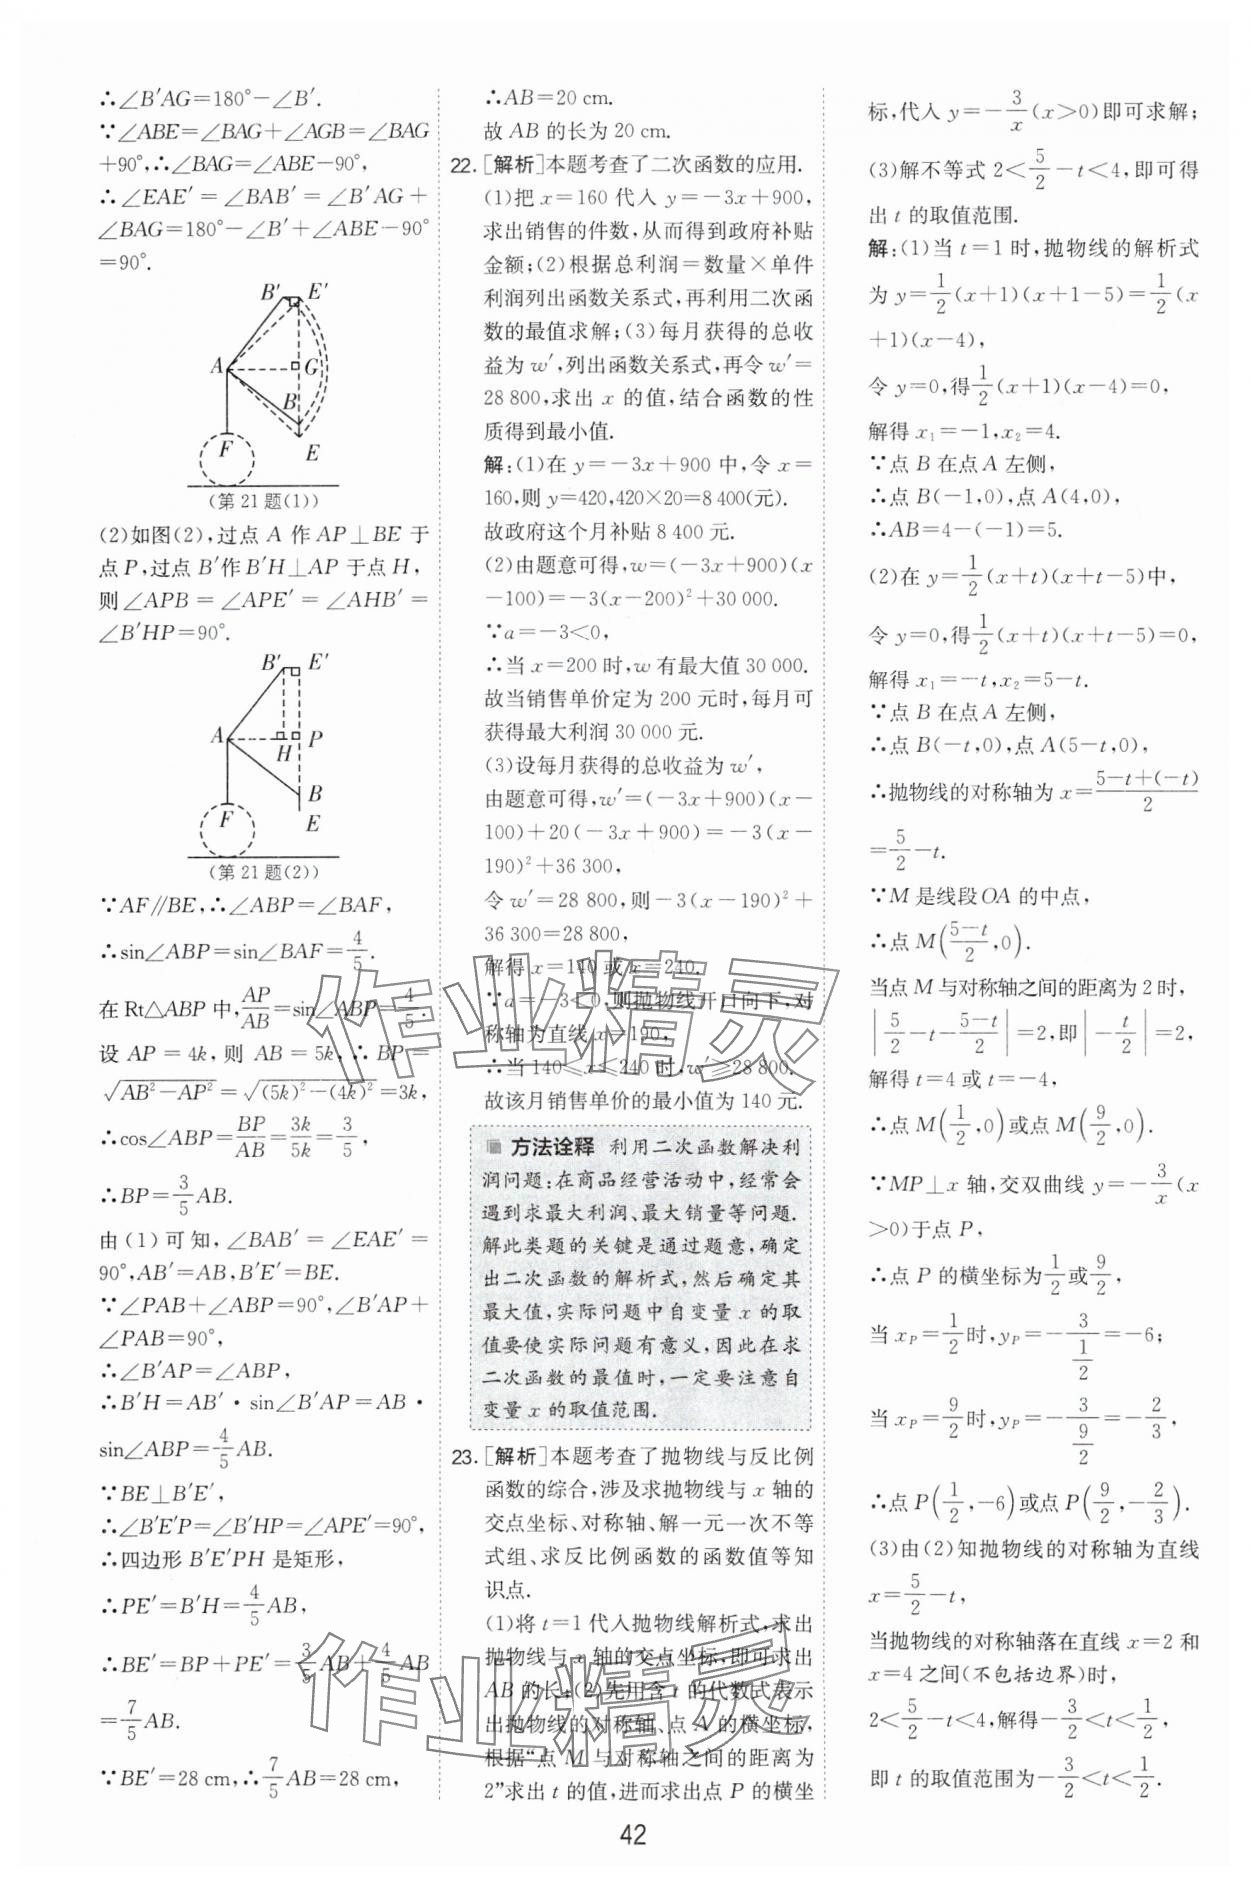 ∴∠B′AG=180°－∠B′.
∵∠ABE=∠BAG+∠AGB=∠BAG
+90°,∴∠BAG=∠ABE－90°,
∴∠EAE′=∠BAB′=∠B′AG+
∠BAG=180°－∠B′+∠ABE－90°
=90°.
B′ E′
A G
B
F E
(第21题(1))
(2)如图(2),过点 A 作 AP⊥BE 于
点 P,过点 B′作 B′H⊥AP 于点 H,
则∠APB=∠APE′=∠AHB′=
∠B′HP=90°.
B′ E′
A H P
B
F E
(第21题(2))
∵AF∥BE,∴∠ABP=∠BAF,
∴sin∠ABP=sin∠BAF=4/5.
在 Rt△ABP 中,AP/AB=sin∠ABP=4/5.
设 AP=4k,则 AB=5k,∴BP=
√(AB²－AP²)=√((5k)²－(4k)²)=3k,
∴cos∠ABP=BP/AB=3k/5k=3/5,
∴BP=3/5AB.
由(1)可知,∠BAB′=∠EAE′=
90°,AB′=AB,B′E′=BE.
∵∠PAB+∠ABP=90°,∠B′AP+
∠PAB=90°,
∴∠B′AP=∠ABP,
∴B′H=AB′·sin∠B′AP=AB·
sin∠ABP=4/5AB.
∵BE⊥B′E′,
∴∠B′E′P=∠B′HP=∠APE′=90°,
∴四边形 B′E′PH 是矩形,
∴PE′=B′H=4/5AB,
∴BE′=BP+PE′=3/5AB+4/5AB
=7/5AB.
∵BE′=28 cm,∴7/5AB=28 cm,
∴AB=20 cm.
故 AB 的长为 20 cm.
22.[解析]本题考查了二次函数的应用.
(1)把 x=160 代入 y=－3x+900,
求出销售的件数,从而得到政府补贴
金额;(2)根据总利润=数量×单件
利润列出函数关系式,再利用二次函
数的最值求解;(3)每月获得的总收
益为 w′,列出函数关系式,再令 w′=
28 800,求出 x 的值,结合函数的性
质得到最小值.
解:(1)在 y=－3x+900 中,令 x=
160,则 y=420,420×20=8 400(元).
故政府这个月补贴 8 400 元.
(2)由题意可得,w=(－3x+900)(x
－100)=－3(x－200)²+30 000.
∵a=－3<0,
∴当 x=200 时,w 有最大值 30 000.
故当销售单价定为 200 元时,每月可
获得最大利润 30 000 元.
(3)设每月获得的总收益为 w′,
由题意可得,w′=(－3x+900)(x－
100)+20(－3x+900)=－3(x－
190)²+36 300,
令 w′=28 800,则－3(x－190)²+
36 300=28 800,
解得 x=140 或 x=240.
∵a=－3<0,则抛物线开口向下,对
称轴为直线 x=190,
∴当 140≤x≤240 时,w′≥28 800.
故该月销售单价的最小值为 140 元.
方法诠释 利用二次函数解决利
润问题:在商品经营活动中,经常会
遇到求最大利润、最大销量等问题.
解此类题的关键是通过题意,确定
出二次函数的解析式,然后确定其
最大值,实际问题中自变量 x 的取
值要使实际问题有意义,因此在求
二次函数的最值时,一定要注意自
变量 x 的取值范围.
23.[解析]本题考查了抛物线与反比例
函数的综合,涉及求抛物线与 x 轴的
交点坐标、对称轴、解一元一次不等
式组、求反比例函数的函数值等知
识点.
(1)将 t=1 代入抛物线解析式,求出
抛物线与 x 轴的交点坐标,即可求出
AB 的长;(2)先用含 t 的代数式表示
出抛物线的对称轴、点 A 的横坐标,
根据“点 M 与对称轴之间的距离为
2”求出 t 的值,进而求出点 P 的横坐
标,代入 y=－3/x(x>0)即可求解;
(3)解不等式 2<5/2－t<4,即可得
出 t 的取值范围.
解:(1)当 t=1 时,抛物线的解析式
为 y=1/2(x+1)(x+1－5)=1/2(x
+1)(x－4),
令 y=0,得1/2(x+1)(x－4)=0,
解得 x₁=－1,x₂=4.
∵点 B 在点 A 左侧,
∴点 B(－1,0),点 A(4,0),
∴AB=4－(－1)=5.
(2)在 y=1/2(x+t)(x+t－5)中,
令 y=0,得1/2(x+t)(x+t－5)=0,
解得 x₁=－t,x₂=5－t.
∵点 B 在点 A 左侧,
∴点 B(－t,0),点 A(5－t,0),
∴抛物线的对称轴为 x=(5－t+(－t))/2
=5/2－t.
∵M 是线段 OA 的中点,
∴点 M((5－t)/2,0).
当点 M 与对称轴之间的距离为 2 时,
|5/2－t－(5－t)/2|=2,即|－t/2|=2,
解得 t=4 或 t=－4,
∴点 M(1/2,0)或点 M(9/2,0).
∵MP⊥x 轴,交双曲线 y=－3/x(x
>0)于点 P,
∴点 P 的横坐标为1/2或9/2,
当 xP=1/2时,yP=－3/(1/2)=－6;
当 xP=9/2时,yP=－3/(9/2)=－2/3,
∴点 P(1/2,－6)或点 P(9/2,－2/3).
(3)由(2)知抛物线的对称轴为直线
x=5/2－t,
当抛物线的对称轴落在直线 x=2 和
x=4 之间(不包括边界)时,
2<5/2－t<4,解得－3/2<t<1/2,
即 t 的取值范围为－3/2<t<1/2.
42
作业精灵
作业精灵